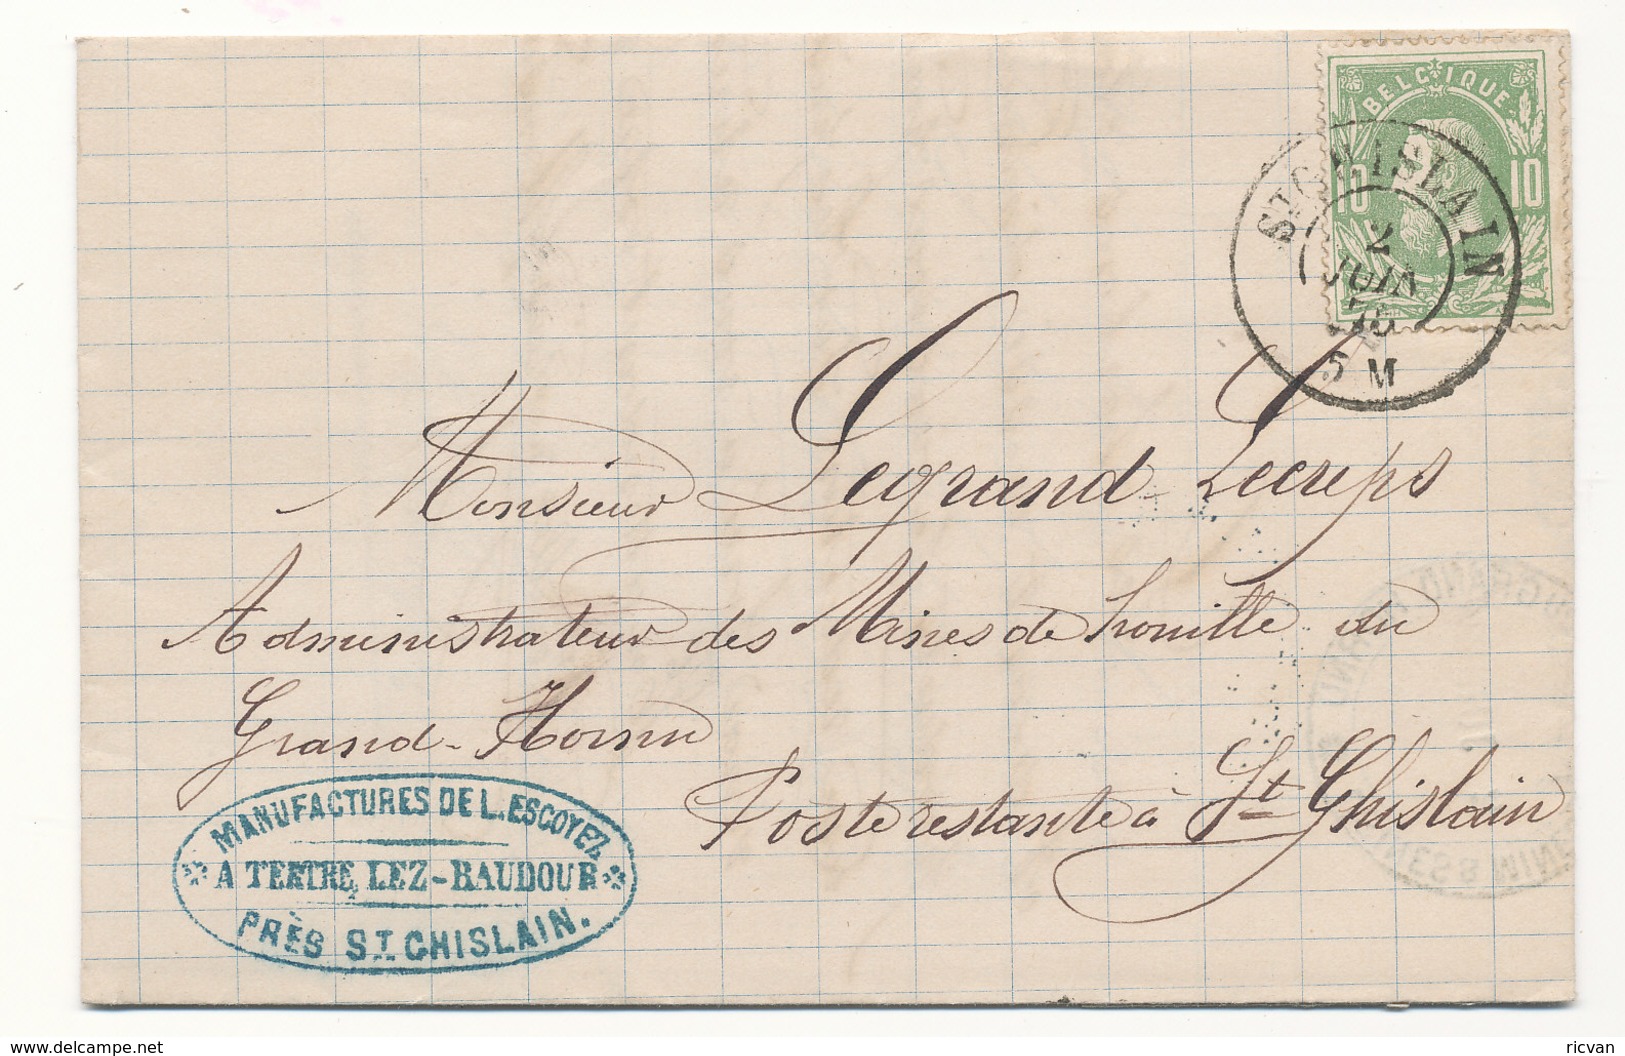 BELGIQUE
10 10
ST GHISLAIN
2
JUIN
5 M
Monsieur Legrand Lecreps
Administrateur des Mines de houille du
Grand-Hornu
Poste restante à St Ghislain
MANUFACTURES DE L. ESCOYEZ
A TERTRE, LEZ-BAUDOUR
PRÈS ST GHISLAIN.
www.delcampe.net
ricvan